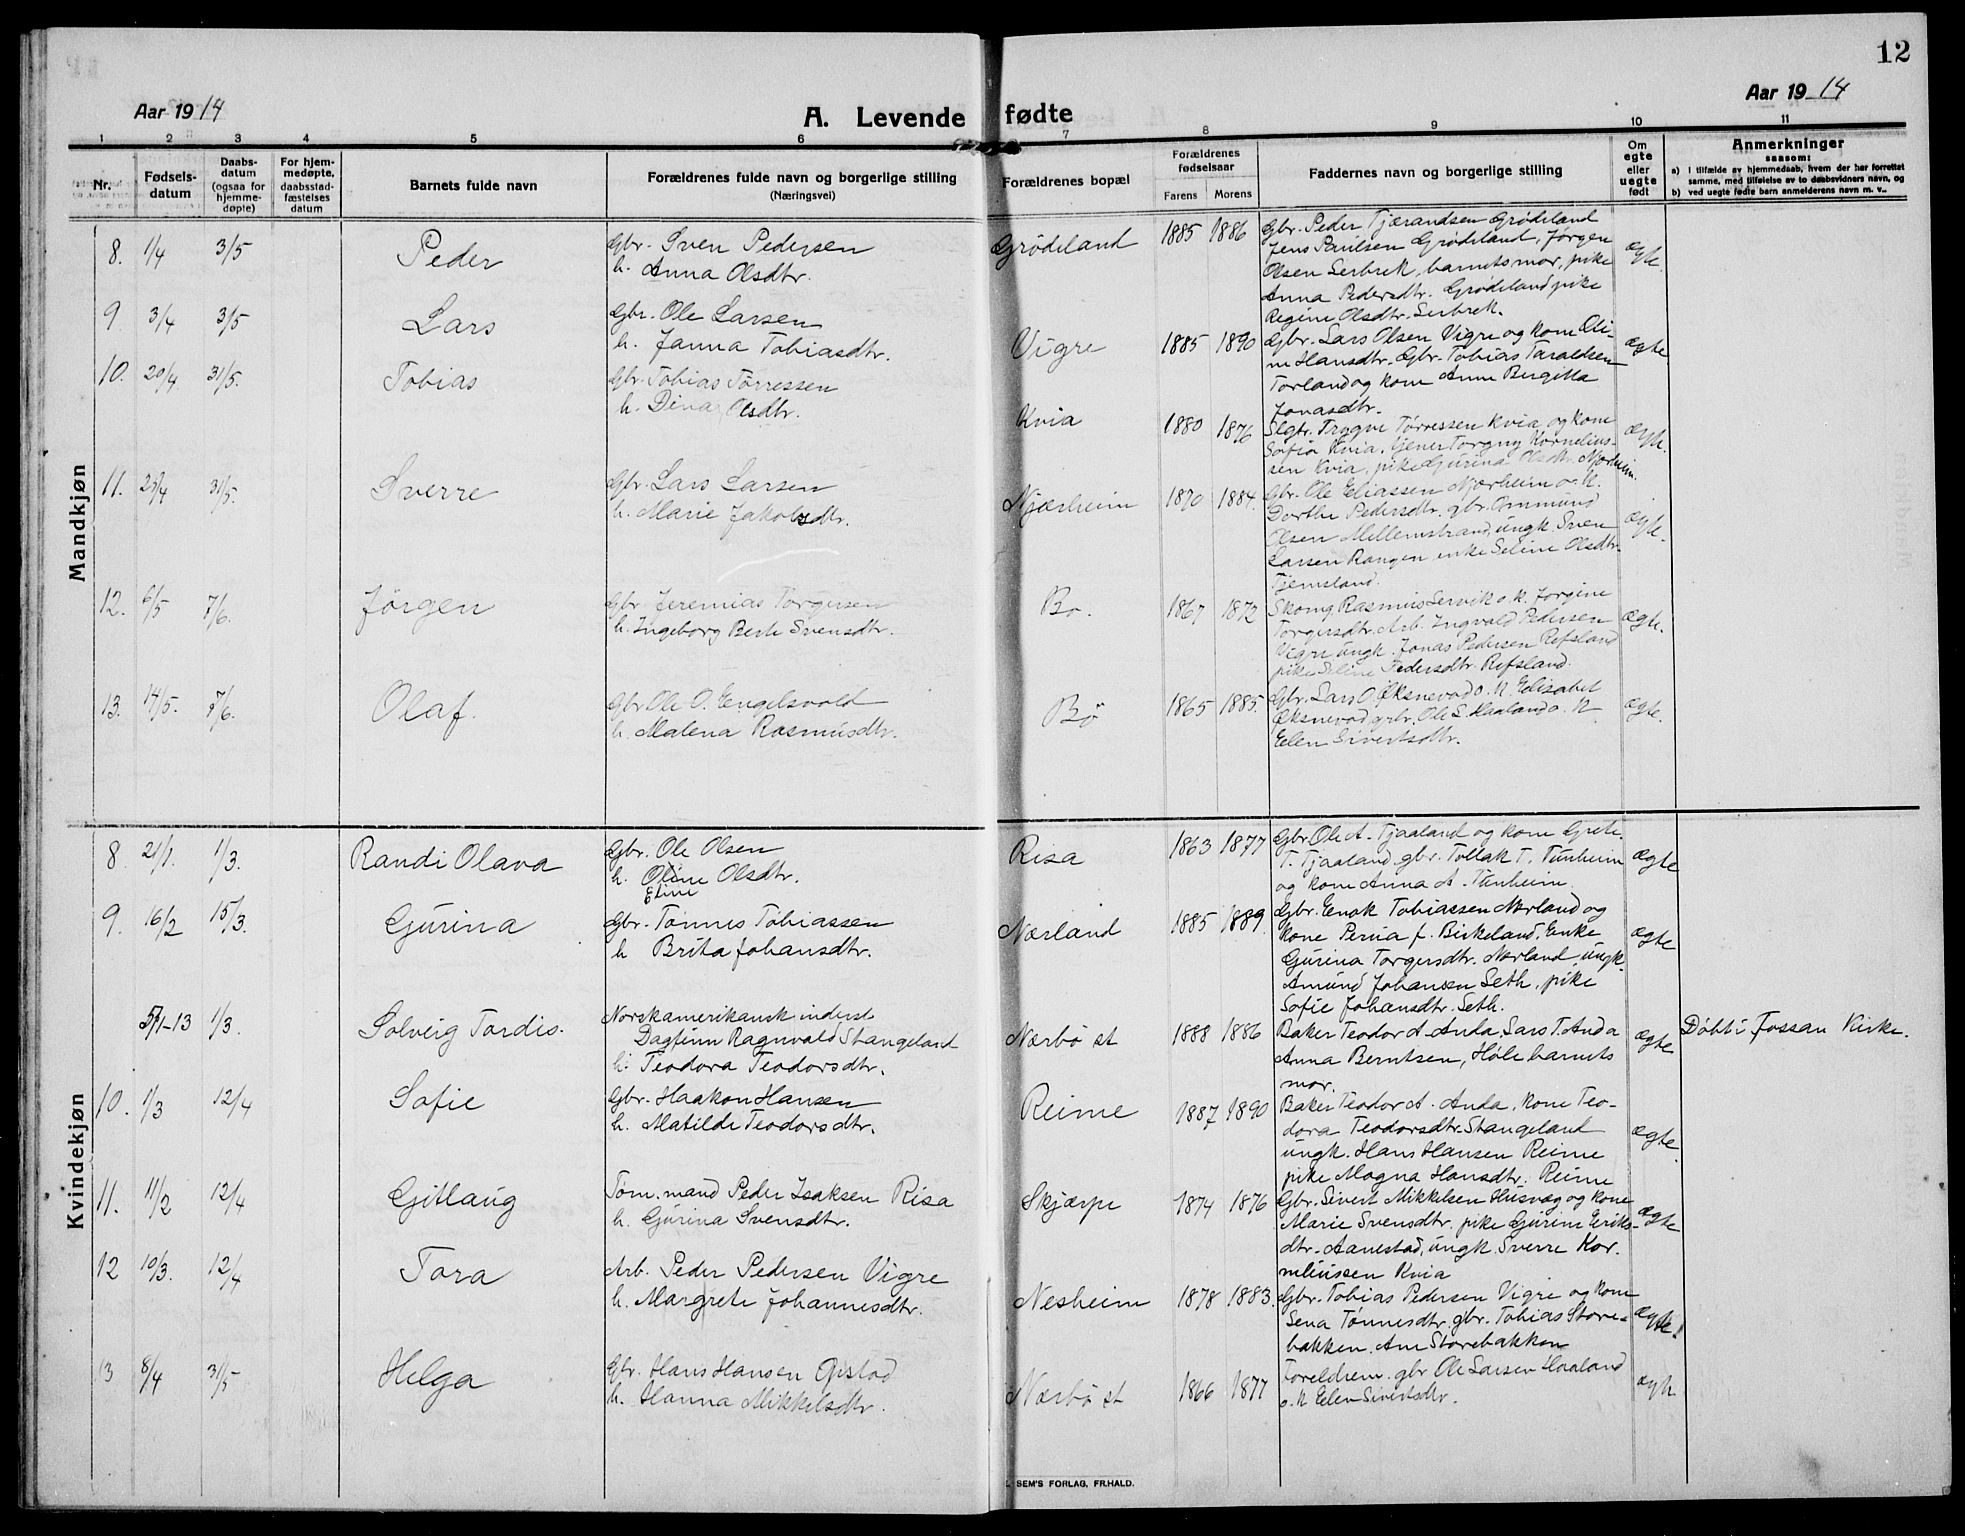 12
Aar 1914
A. Levende fødte
Aar 1914
1 2 3 4 5 6 7 8 9 10 11
Nr.
Fødsels-
datum
Daabs-
datum
(ogsaa for
hjemme-
døpte)
For hjem-
medøpte,
daabsstad-
fæstelses
datum
Barnets fulde navn
Forældrenes fulde navn og borgerlige stilling
(Næringsvei)
Forældrenes bopæl
Forældrenes
fødselsaar
Farens Morens
Faddernes navn og borgerlige stilling
Om
egte
eller
uegte
født
Anmerkninger
saasom:
a) I tilfælde av hjemmedaab, hvem der har forrettet
samme, med tilføielse av to daabsvidners navn, og
b) ved uegte fødte barn anmelderens navn m. v..
Mandkjøn
8. 1/4 3/5 Peder
Gbr. Sven Pedersen
h. Anna Olsdtr.
Grödeland 1885 1886
Gbr. Peder Tjærandsen Grödeland
Jens Paulsen Grödeland, Jørgen
Olsen Serbrek, barnets mor, pike
Anna Pedersdtr. Grödeland pike
Regine Olsdtr. Serbrek.
ægte.
9 3/4 3/5 Lars
Gbr. Ole Larsen
h. Janna Tobiasdtr.
Vigre 1885 1890
Gbr. Lars Olsen Vigre og kone Oli-
ne Hansdtr. Gbr. Tobias Taraldsen
Torland og kone Anne Bergitta
Jonasdtr.
ægte
10. 20/4 31/5. Tobias
Gbr. Tobias Törressen
h. Dina Olsdtr.
Kvia 1880 1876
Slgtr. Trygve Törressen Kvia og kone
Sofie Kvia, tjener Torgny Kornelius-
sen Kvia, pike Gurina Olsdtr. Njærheim.
ægte.
11. 23/4 31/5. Sverre
Gbr. Lars Larsen
h. Marie Jakobsdtr.
Njærheim 1870 1884.
Gbr. Ole Eliassen Njærheim o. k.
Dorthe Pedersdtr. gbr. Ommund
Olsen Mellemstrand, ungk. Sven
Larsen Rangen, enke Seline Olsdtr.
Tjemsland.
ægte.
12. 6/5 7/6. Jörgen
Gbr. Jeremias Torgersen
h. Ingeborg Berte Svensdtr.
Bo. 1867 1872
Skomg Rasmus Servik o. k. Jorgine
Torgersdtr. Arb. Ingvald Pedersen
Vigre ungk. Jonas Pedersen Refsland
pike Seline Pedersdtr. Refsland.
ægte.
13. 14/5. 7/6. Olaf.
Gbr Ole O. Engelsvold
h. Malena Rasmusdtr.
Bö 1865 1885.
Gbr. Lars O. Øksnevad o. k. Elisabet
Øksnevad, gbr. Ole L. Haaland o. k
Elen Sivertsdtr.
ægte.
Kvindekjøn
8. 21/1. 1/3. Randi Olava
Gbr. Ole Olsen
h. Oline Olsdtr.
Eline
Risa 1863 1877
Gbr. Ole A. Tjaaland og kone Grete
T. Tjaaland, gbr. Tollak T. Tunheim
og kone Anna A. Tunheim.
ægte
9. 16/2 15/3. Gurina
Gbr. Tönnes Tobiassen
h Brita Johansdtr.
Nærland 1885 1889.
Gbr. Enok Tobiassen Nærland og
kone Perna f. Birkeland, Enke
Gurina Torgersdtr. Nærland ungk.
Amund Johansen Seth, pike
Sofie Johansdtr. Seth.
ægte
5/1-13 1/3. Solveig Tordis.
Norskamerikansk inderst
Dagfinn Ragnvald Stangeland
h: Teodora Teodorsdtr.
Nærbö st 1888 1886
Baker Teodor A. Anda, Lars T. Anda
Anna Berntsen, Høle barnets
mor.
ægte
Döbt i Fossan Kirke.
10. 1/3 12/4 Sofie
Gbr. Haakon Hansen
h. Matilde Teodorsdtr.
Reime 1887 1890
Baker Teodor A. Anda, kone Teo-
dora Teodorsdtr. Stangeland
ungk. Hans Hansen Reime
pike Magna Hansdtr. Reime
ægte.
11. 11/2 12/4 Gitlaug
Töm.mand Peder Isaksen Risa
h. Gurina Svensdtr.
Skjærpe 1874 1876
Gbr. Sivert Mikkelsen Husvæg og kone
Marie Svensdtr. pike Gurine Eriks-
dtr. Aanestad, ungk. Sverre Kor.
neliussen Kvia
ægte
12 10/3. 12/4 Tora
Arb. Peder Pedersen Vigre
h. Margrete Johannesdtr.
Nesheim 1878 1883.
Gbr. Tobias Pedersen Vigre og kone
Sena Tönnesdtr. gbr. Tobias Store-
bakken. Ane Storebakken
ægte.
13 8/4 31/5 Helga
Gbr. Hans Hansen Opstad
h. Hanna Mikkelsdtr.
Nærbö st 1866 1877
Foreldrene. gbr Ole Larsen Haaland
o. k Elen Sivertsdtr.
ægte
SEM'S FORLAG, FR.HALD.